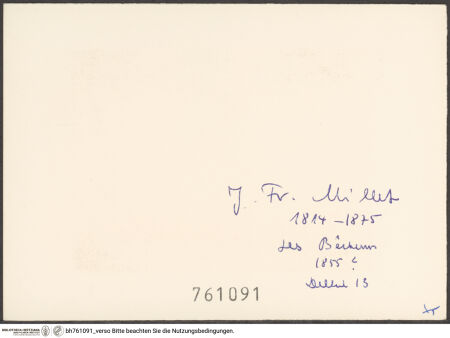 J. Fr. Millet
1814-1875
Les Bêcheurs
1855 ?
Delteil 13
761091
BIBLIOTHECA HERTZIANA
bh761091_verso Bitte beachten Sie die Nutzungsbedingungen.